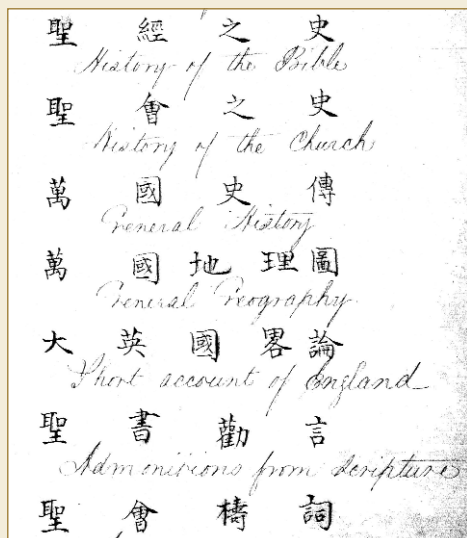 聖經之史
History of the Bible
聖會之史
History of the Church
萬國史傳
General History
萬國地理圖
General Geography
大英國畧論
Short account of England
聖書勸言
Admonitions from Scripture
聖會檮詞